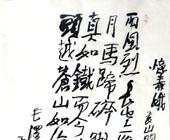 憶秦娥
西風烈長空
月馬蹄碎
真如鐵而今
頭越蒼山如
毛澤